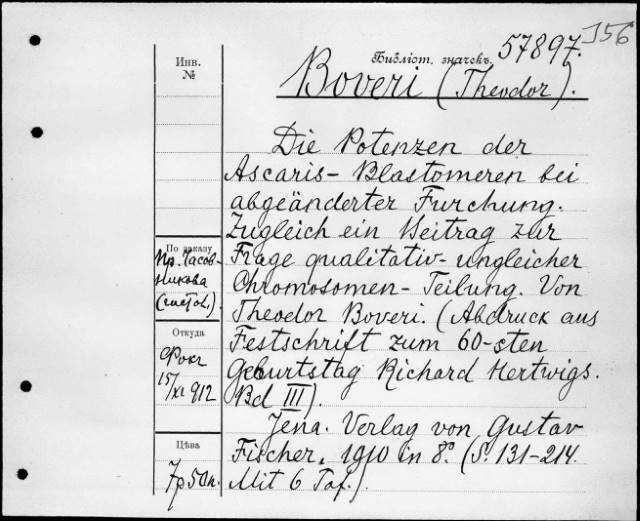 57897.
J56
Инв.
№
Библіот. значекъ
Boveri (Theodor).
Die Potenzen der
Ascaris- Blastomeren bei
abgeänderter Furchung.
Zugleich ein Beitrag zur
Frage qualitativ-ungleicher
Chromosomen- Teilung. Von
Theodor Boveri. (Abdruck aus
Festschrift zum 60-sten
Geburtstag Richard Hertwigs.
Bd III).
Jena. Verlag von Gustav
Fischer. 1910 in 8°. (S. 131-214.
Mit 6 Taf.)
По заказу
Пр. Часов-
никова
(гистол.)
Откуда
Фокг
15/XI 912
Цѣна
7р 50к.